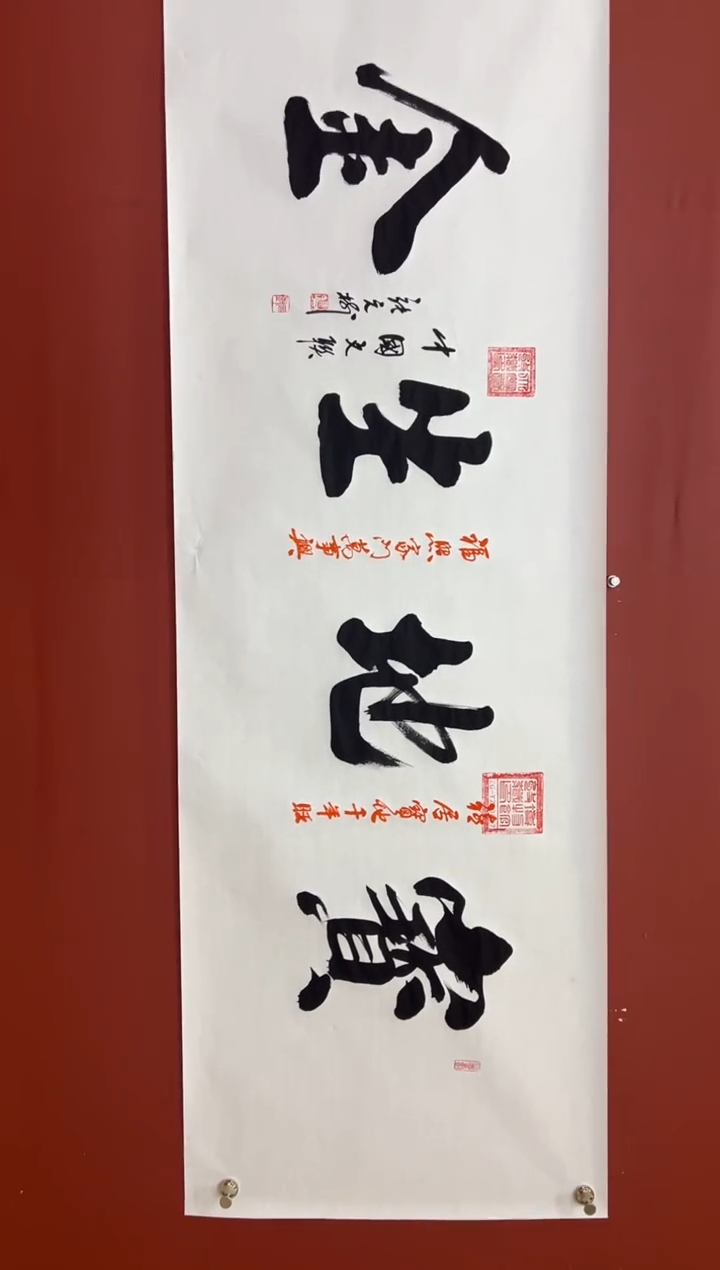 寶地生金
福居寶地千年旺
福照家门萬事興
中國文聯